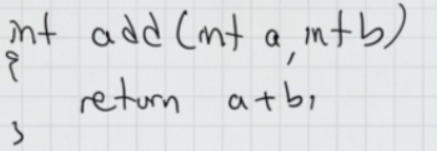 int add (int a, int b)
{
return a+b;
}